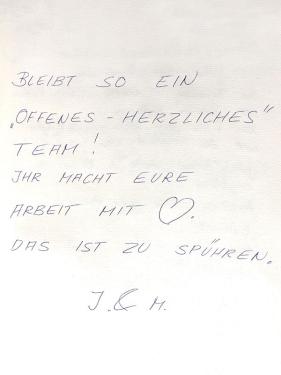 BLEIBT SO EIN
„OFFENES - HERZLICHES"
TEAM!
IHR MACHT EURE
ARBEIT MIT ♡.
DAS IST ZU SPÜHREN.
J. & M.